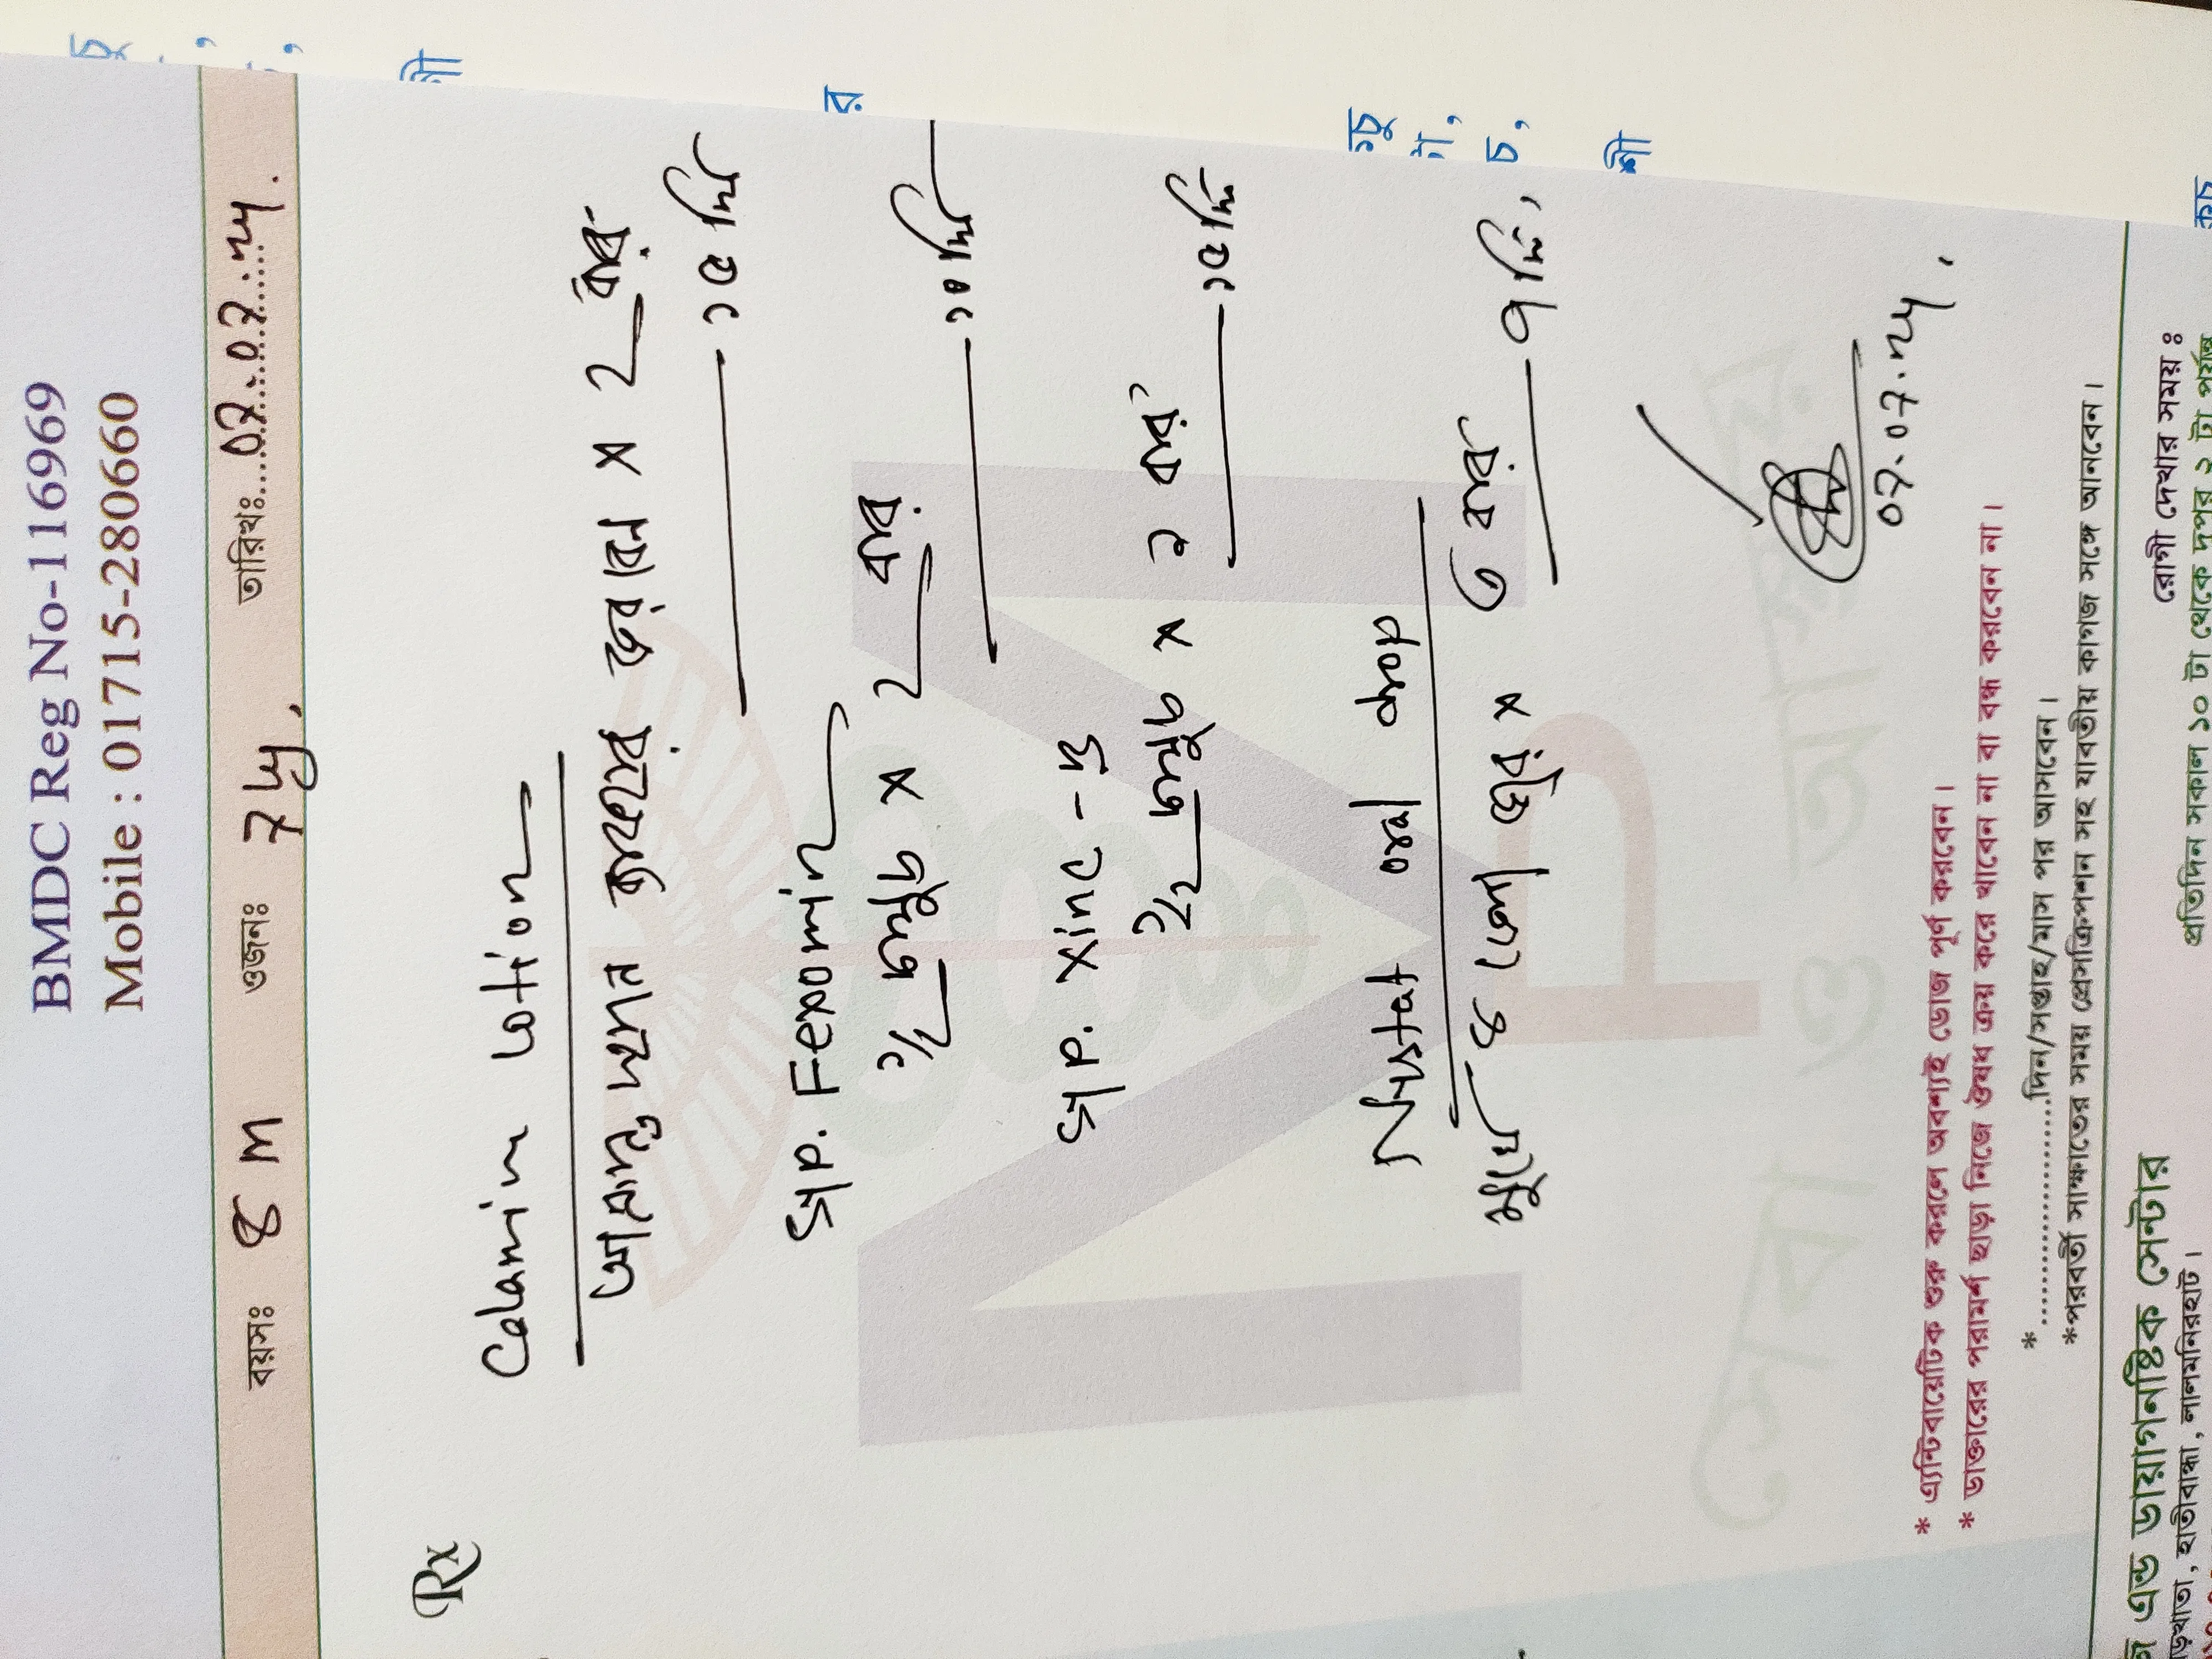 BMDC Reg No-116969
Mobile : 01715-280660
বয়সঃ 8 m ওজনঃ 7 kg, তারিখঃ 07.07.24.
Rx
Calamin lotion
১৫ দিন
Syp. Fexomin
১/২ চামুচ × 2 বার
১০ দিন
Syp. Xinc-B
১/২ চামুচ × ২ বার
১৫ দিন
Nystat oral drop
মুখে ৪ ফোটা × ৩ বার
৭ দিন,
07.07.24,
সেবা ও আশ্রয়
* এ্যান্টিবায়োটিক শুরু করলে অবশ্যই ডোজ পূর্ণ করবেন।
* ডাক্তারের পরামর্শ ছাড়া নিজে ঔষধ ক্রয় করে খাবেন না বা বন্ধ করবেন না।
* ........................দিন/সপ্তাহ/মাস পর আসবেন।
*পরবর্তী সাক্ষাতের সময় প্রেসক্রিপশন সহ যাবতীয় কাগজ সঙ্গে আনবেন।
এন্ড ডায়াগনষ্টিক সেন্টার রোগী দেখার সময় ঃ
হাতীবান্ধা, লালমনিরহাট। প্রতিদিন সকাল ১০ টা থেকে দুপুর ২ টা পর্যন্ত